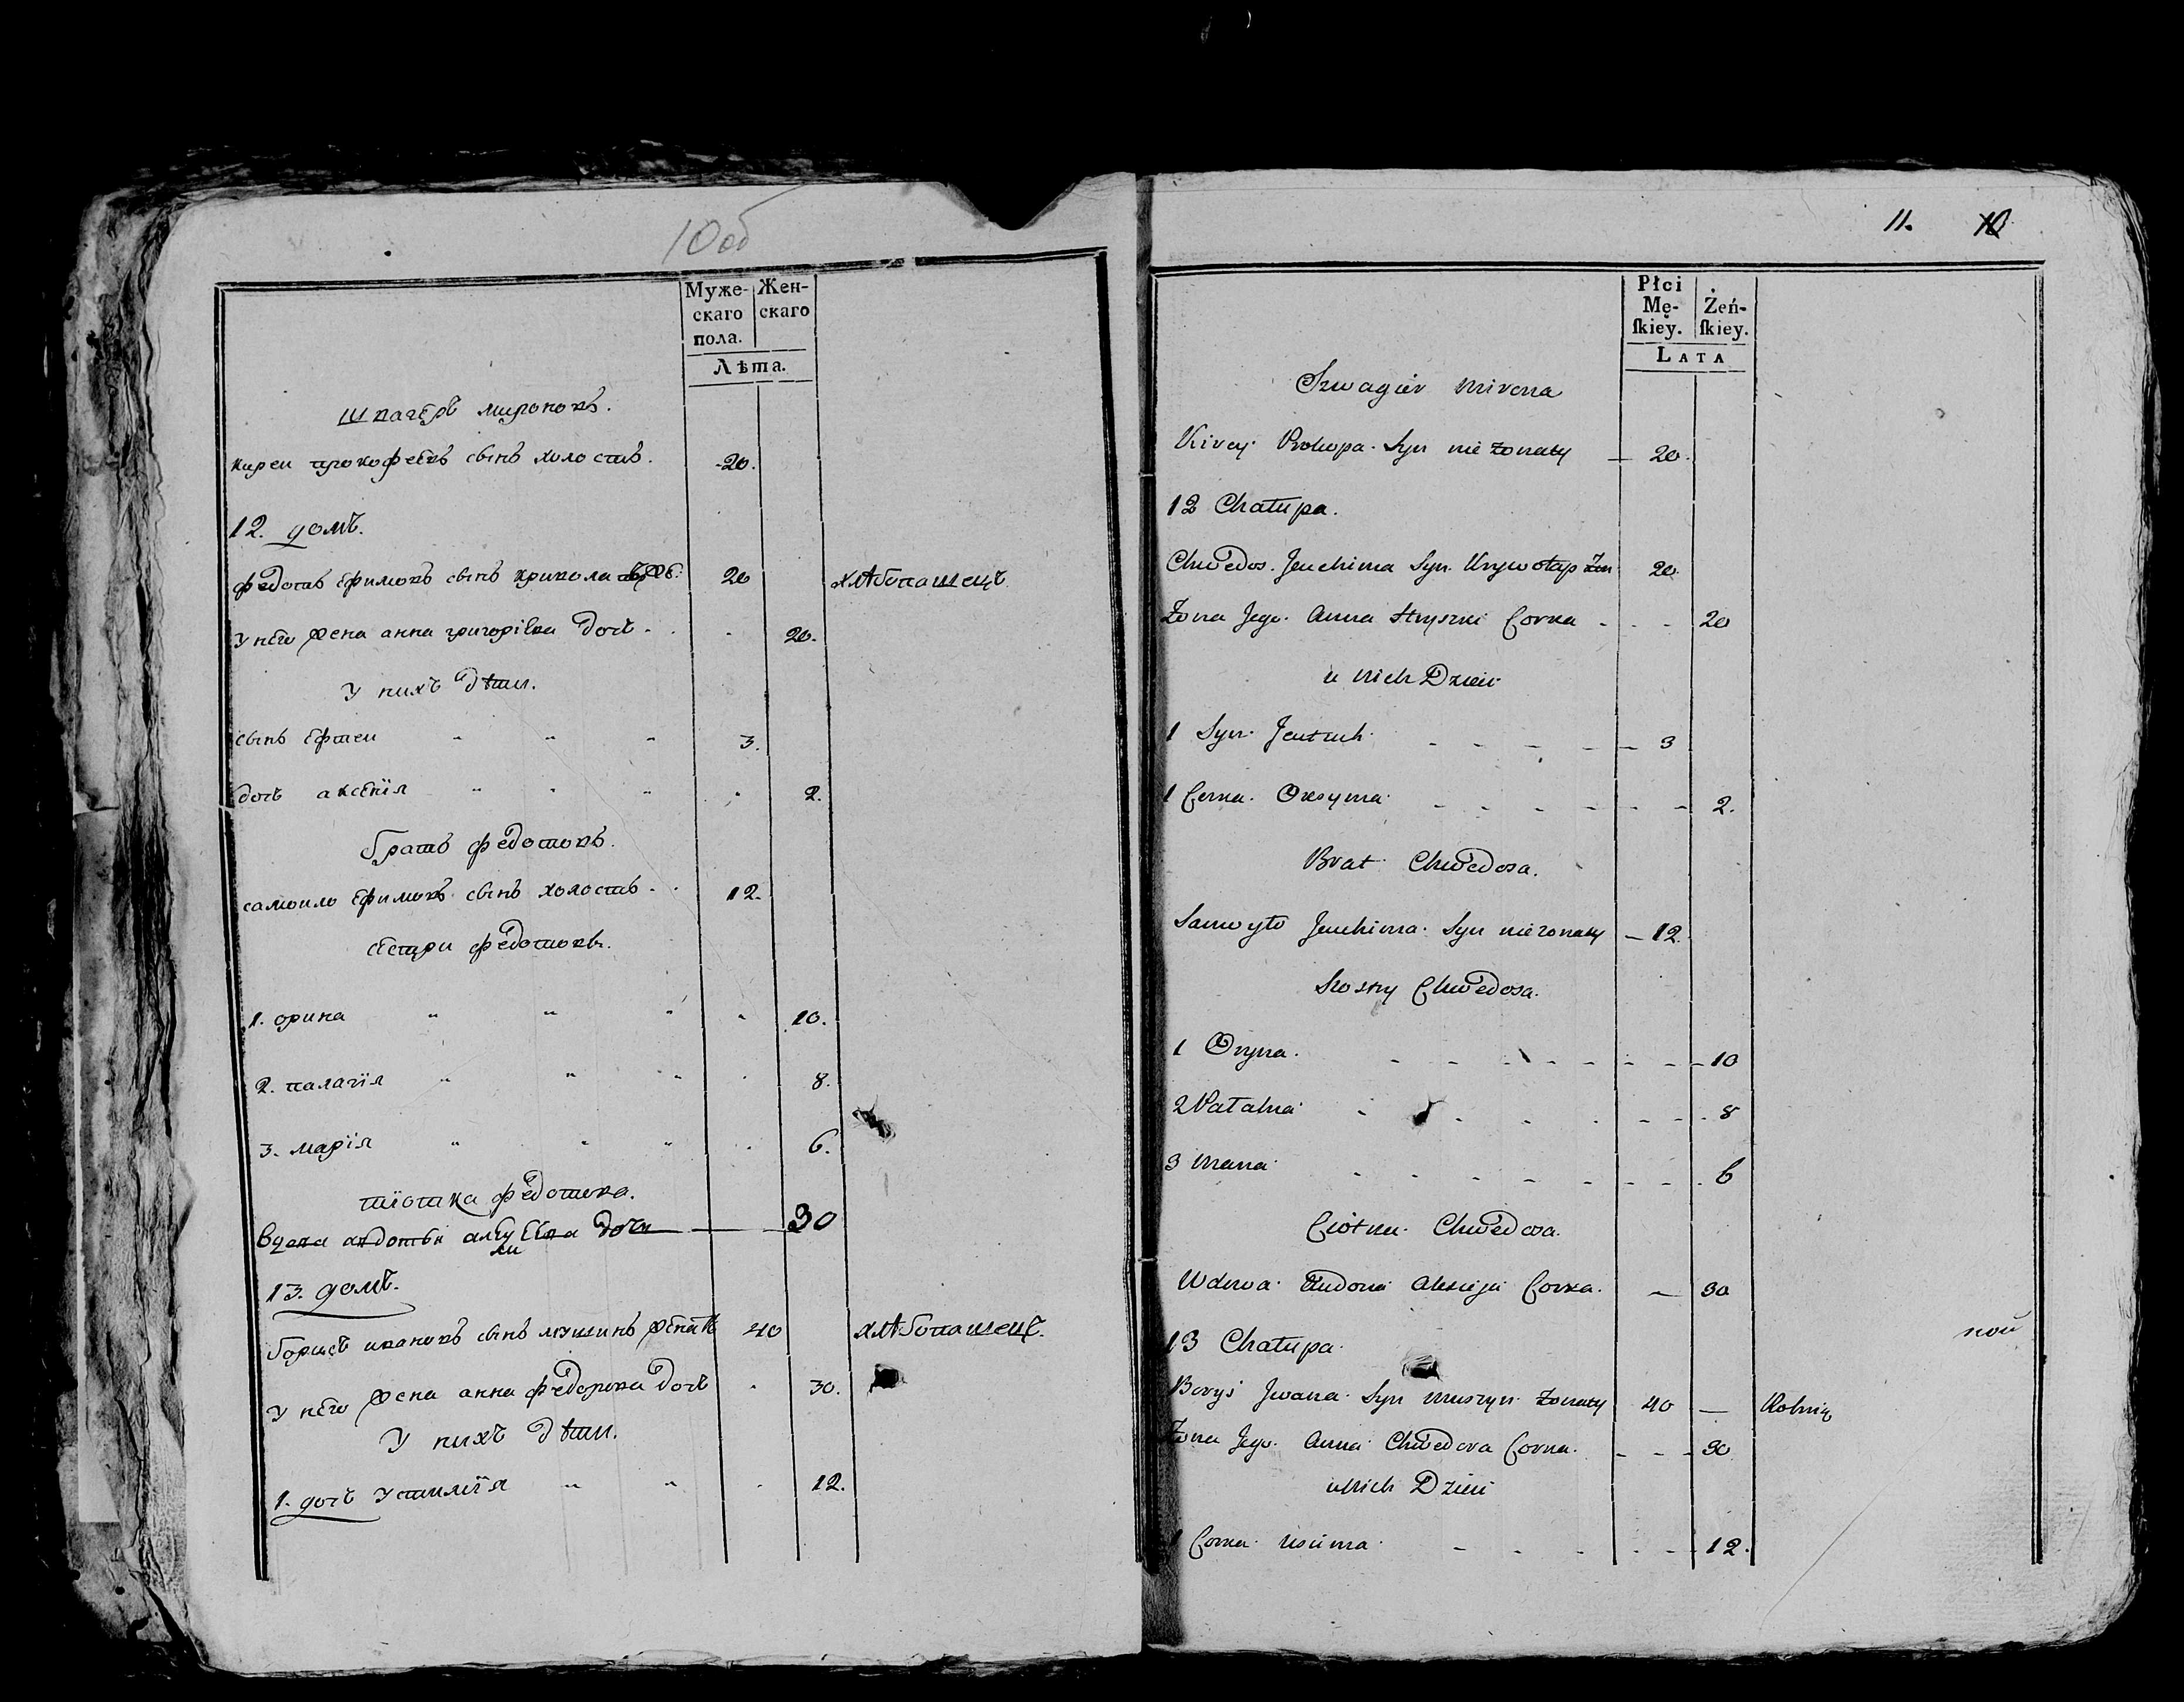 10 об
Муже-
скаго
пола.
Жен-
скаго
Лѣта.
швагеръ мироновъ.
кирей прокофѣевъ сынъ холостъ. 20.
12. домъ.
федотъ ефимовъ сынъ кривола 20 хлѣбопашецъ
у него жена анна григорівна дочь 20.
у нихъ дѣти.
сынъ ефтей 3.
дочь аксенїя 2.
братъ федотовъ.
самоило ефимовъ сынъ холостъ 12.
сестри федотовы.
1. орина 10.
2. палагїя 8.
3. марїя 6.
тїотка федотова.
вдова авдотья дочь 30
13. домъ.
борисъ ивановъ сынъ мушинъ женатъ 40 хлѣбопашецъ.
у него жена анна федорова дочь 30.
у нихъ дѣти.
1. дочь устимїя 12.
11. 10
Płci
Mę-
ſkiey.
Żeń-
ſkiey.
LATA
Szwagier Mirona
Kirey Prokopa Syn nie żonaty 20
12 Chałupa.
Chwedos Jeuchima Syn Krywołap Żon 20
Żona Jego Anna Hryszki Corka 20
u nich Dzieci
1 Syn Jeutuch 3
1 Corka Oxeynia 2.
Brat Chwedosa.
Samoyło Jeuchima Syn nieżonaty 12.
Siostry Chwedosa.
1 Oryna 10
2 Pałahia 8
3 Maria 6
Ciotka Chwedosa.
Wdowa Eudonia Alexieja Corka. 30
13 Chałupa
ной
Borys Jwana Syn Muszyn żonaty 40 — Rolnik
Żona Jego Anna Chwedora Corka. 30
u Nich Dzieci
1 Corka Uscima 12.